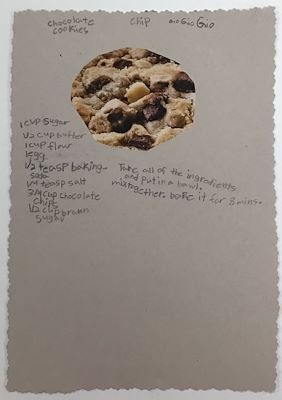 chocolate chip
cookies
1 cup sugar
1/2 cup butter
1 cup flour
1 egg
1/2 teasp baking
soda
1/4 teasp salt
3/4 cup chocolate
chips
1/2 cup brown
sugar
Take all of the ingredients
and put in a bawl.
mix together. bake it for 8 mins.